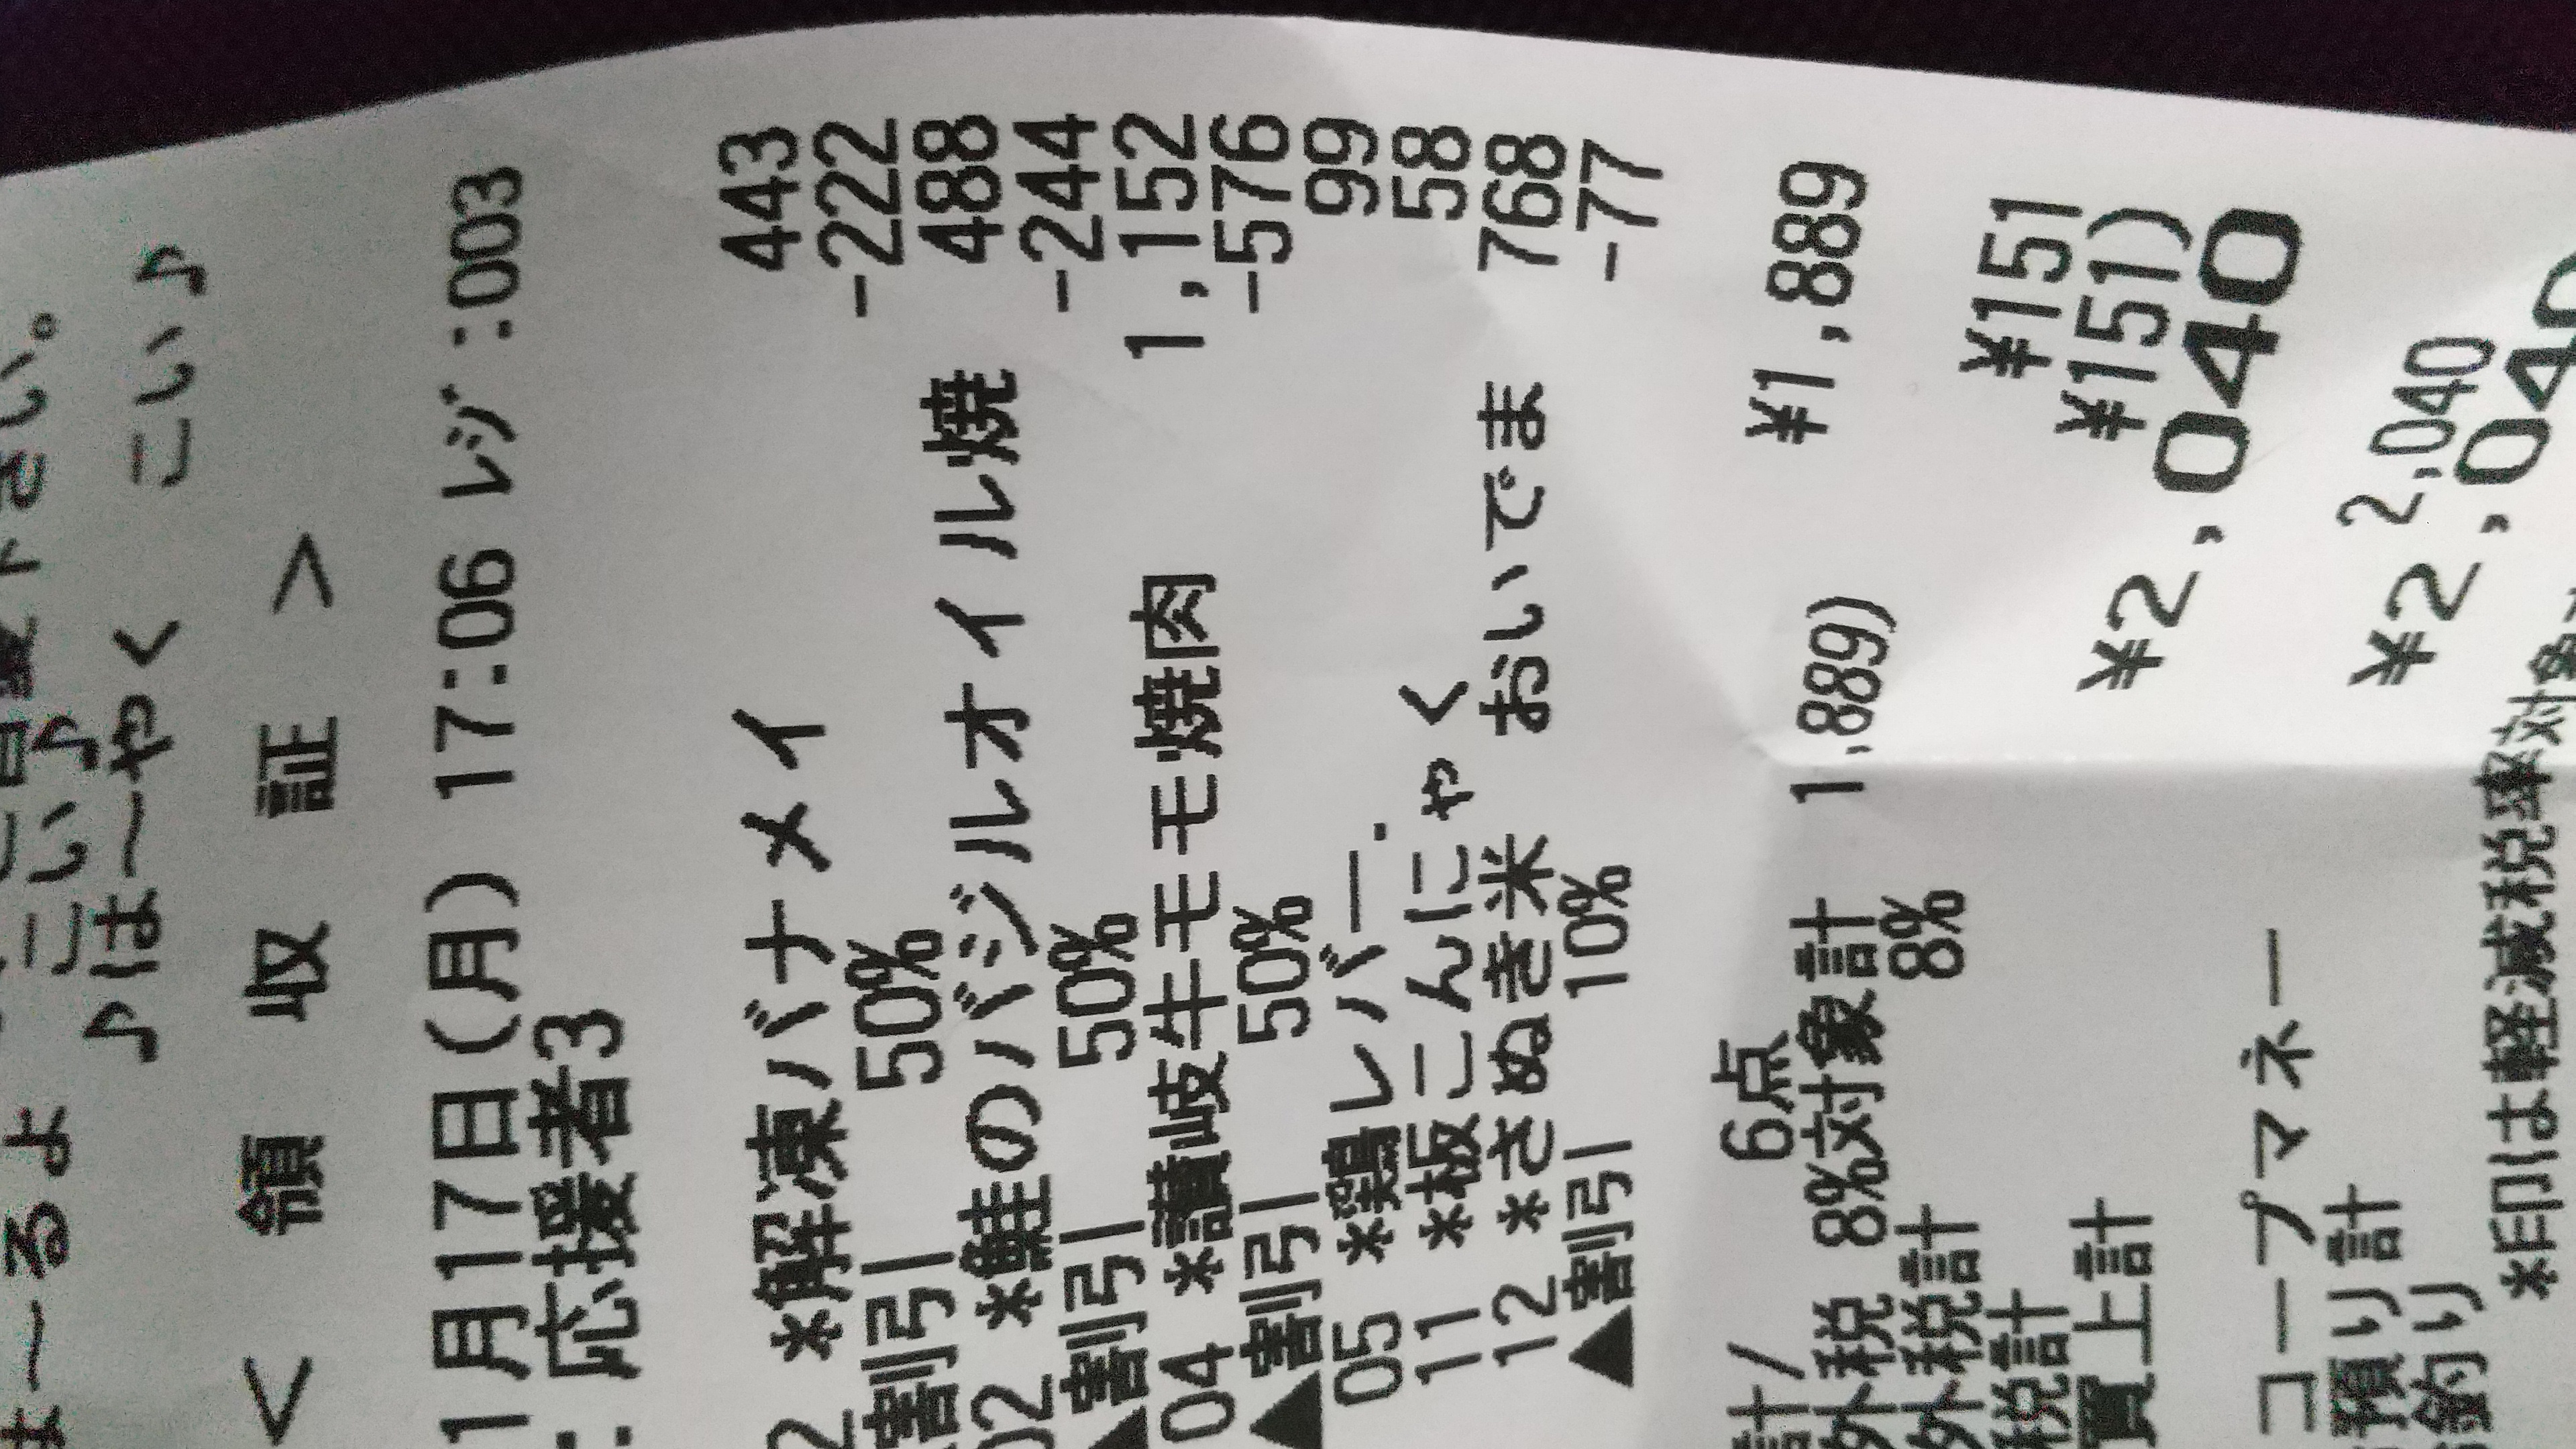 は~るよ こい♪
♪は~やく こい♪
< 領 収 証 >
1月17日(月) 17:06 レジ:003
:応援者3
2 *解凍バナメイ 443
割引 50% -222
02 *鮭のバジルオイル焼 488
▲割引 50% -244
04 *讃岐牛モモ焼肉 1,152
▲割引 50% -576
05 *鶏レバー. 99
11 *板こんにゃく 58
12 *さぬき米 おいでま 768
▲割引 10% -77
計/ 6点 ¥1,889
外税 8%対象計 1,889)
外税計 8% ¥151
税計 ¥151)
買上計 ¥2,040
コープマネー 2,040
預り計 ¥2,040
釣り
*印は軽減税率対象